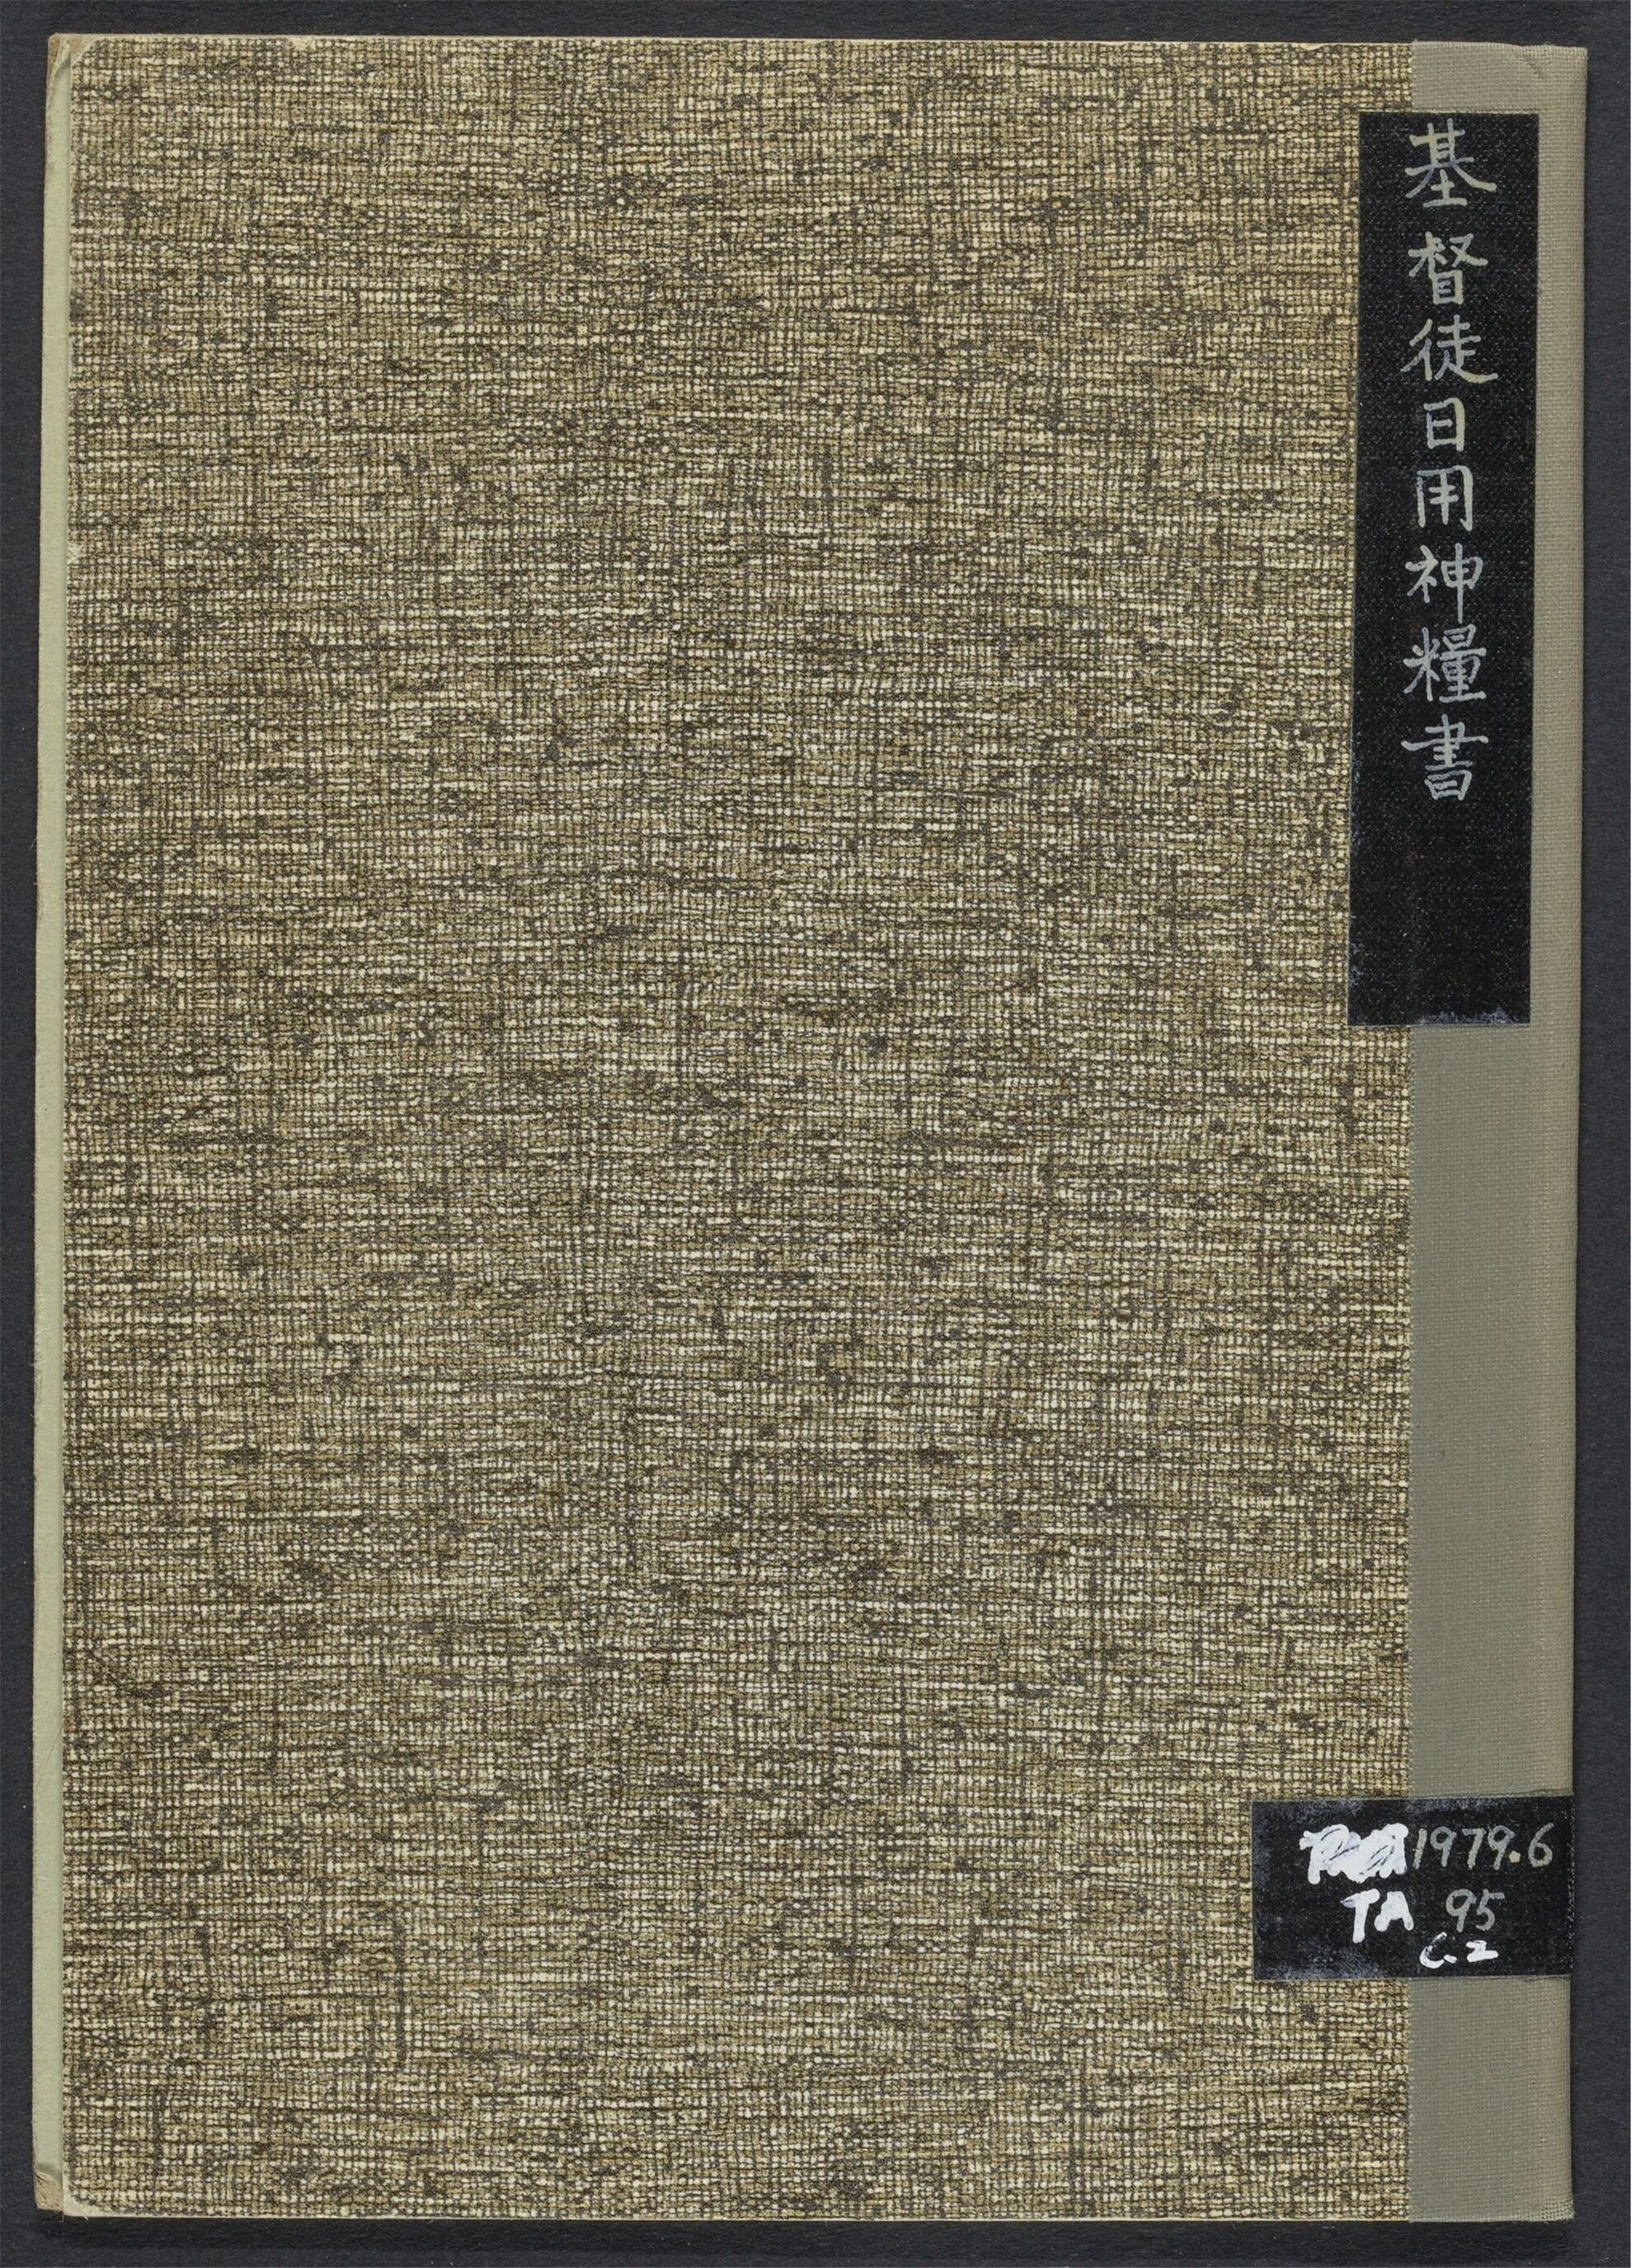 基督徒日用神糧書
TA 1979.6
95
C.2